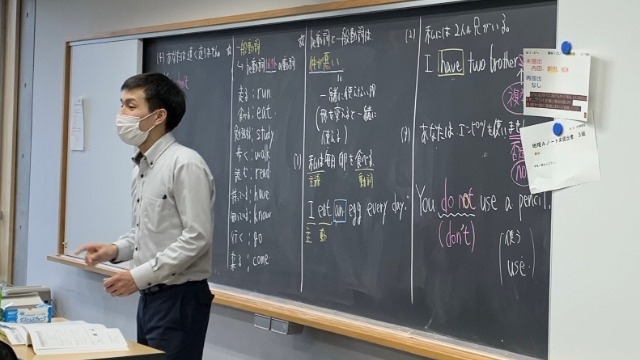 (4) あなたは速く走りません。
☆ 一般動詞
be動詞以外の動詞
走る:run
食べる:eat
勉強する:study
歩く:walk
読む:read
持っている:have
知っている:know
行く:go
来る:come
☆ be動詞と一般動詞は
仲が悪い
(1) 私は毎日 卵を食べる
主語 動詞
I eat an egg every day.
主 動
(2) 私には2人の兄がいる。
I have two brother
複
(3) あなたはエンピツを使いません
You do not use a pencil.
(don't)
(使う
use)
未提出
再提出
なし